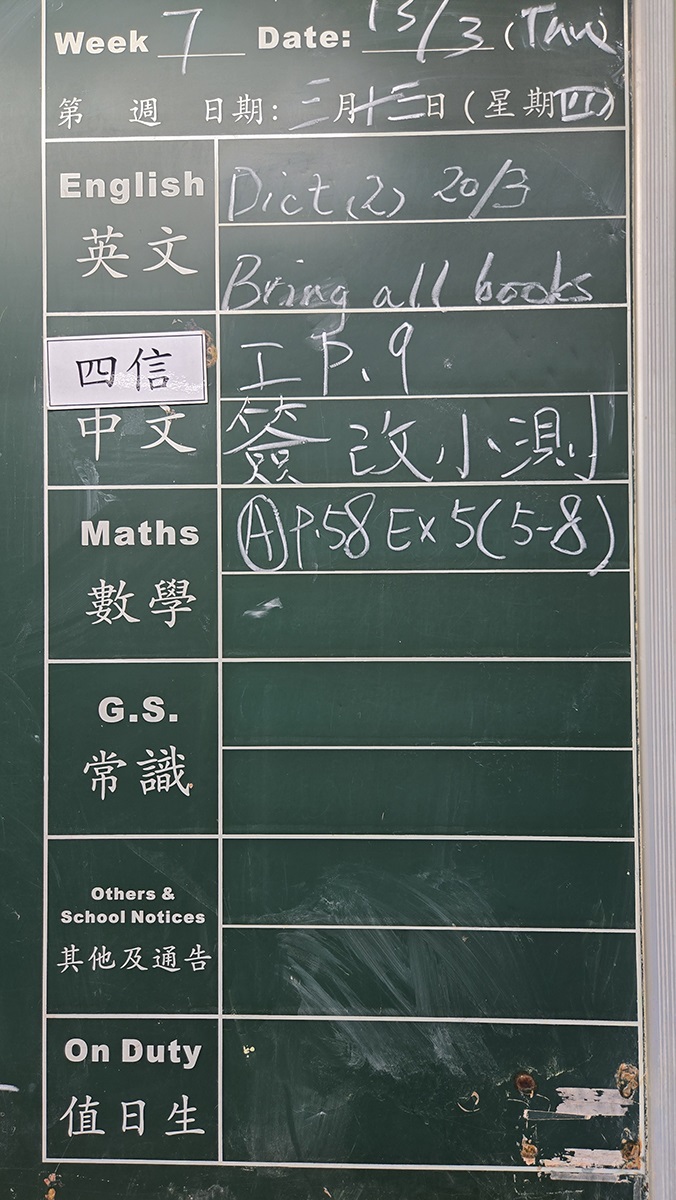 Week 7 Date: 13/3 (Thu)
第 週 日期: 三月十三日 (星期四)
English
英文
Dict (2) 20/3
Bring all books
四信
中文
工 P.9
簽改小測
Maths
數學
Ⓐ P.58 Ex 5(5-8)
G.S.
常識
Others &
School Notices
其他及通告
On Duty
值日生